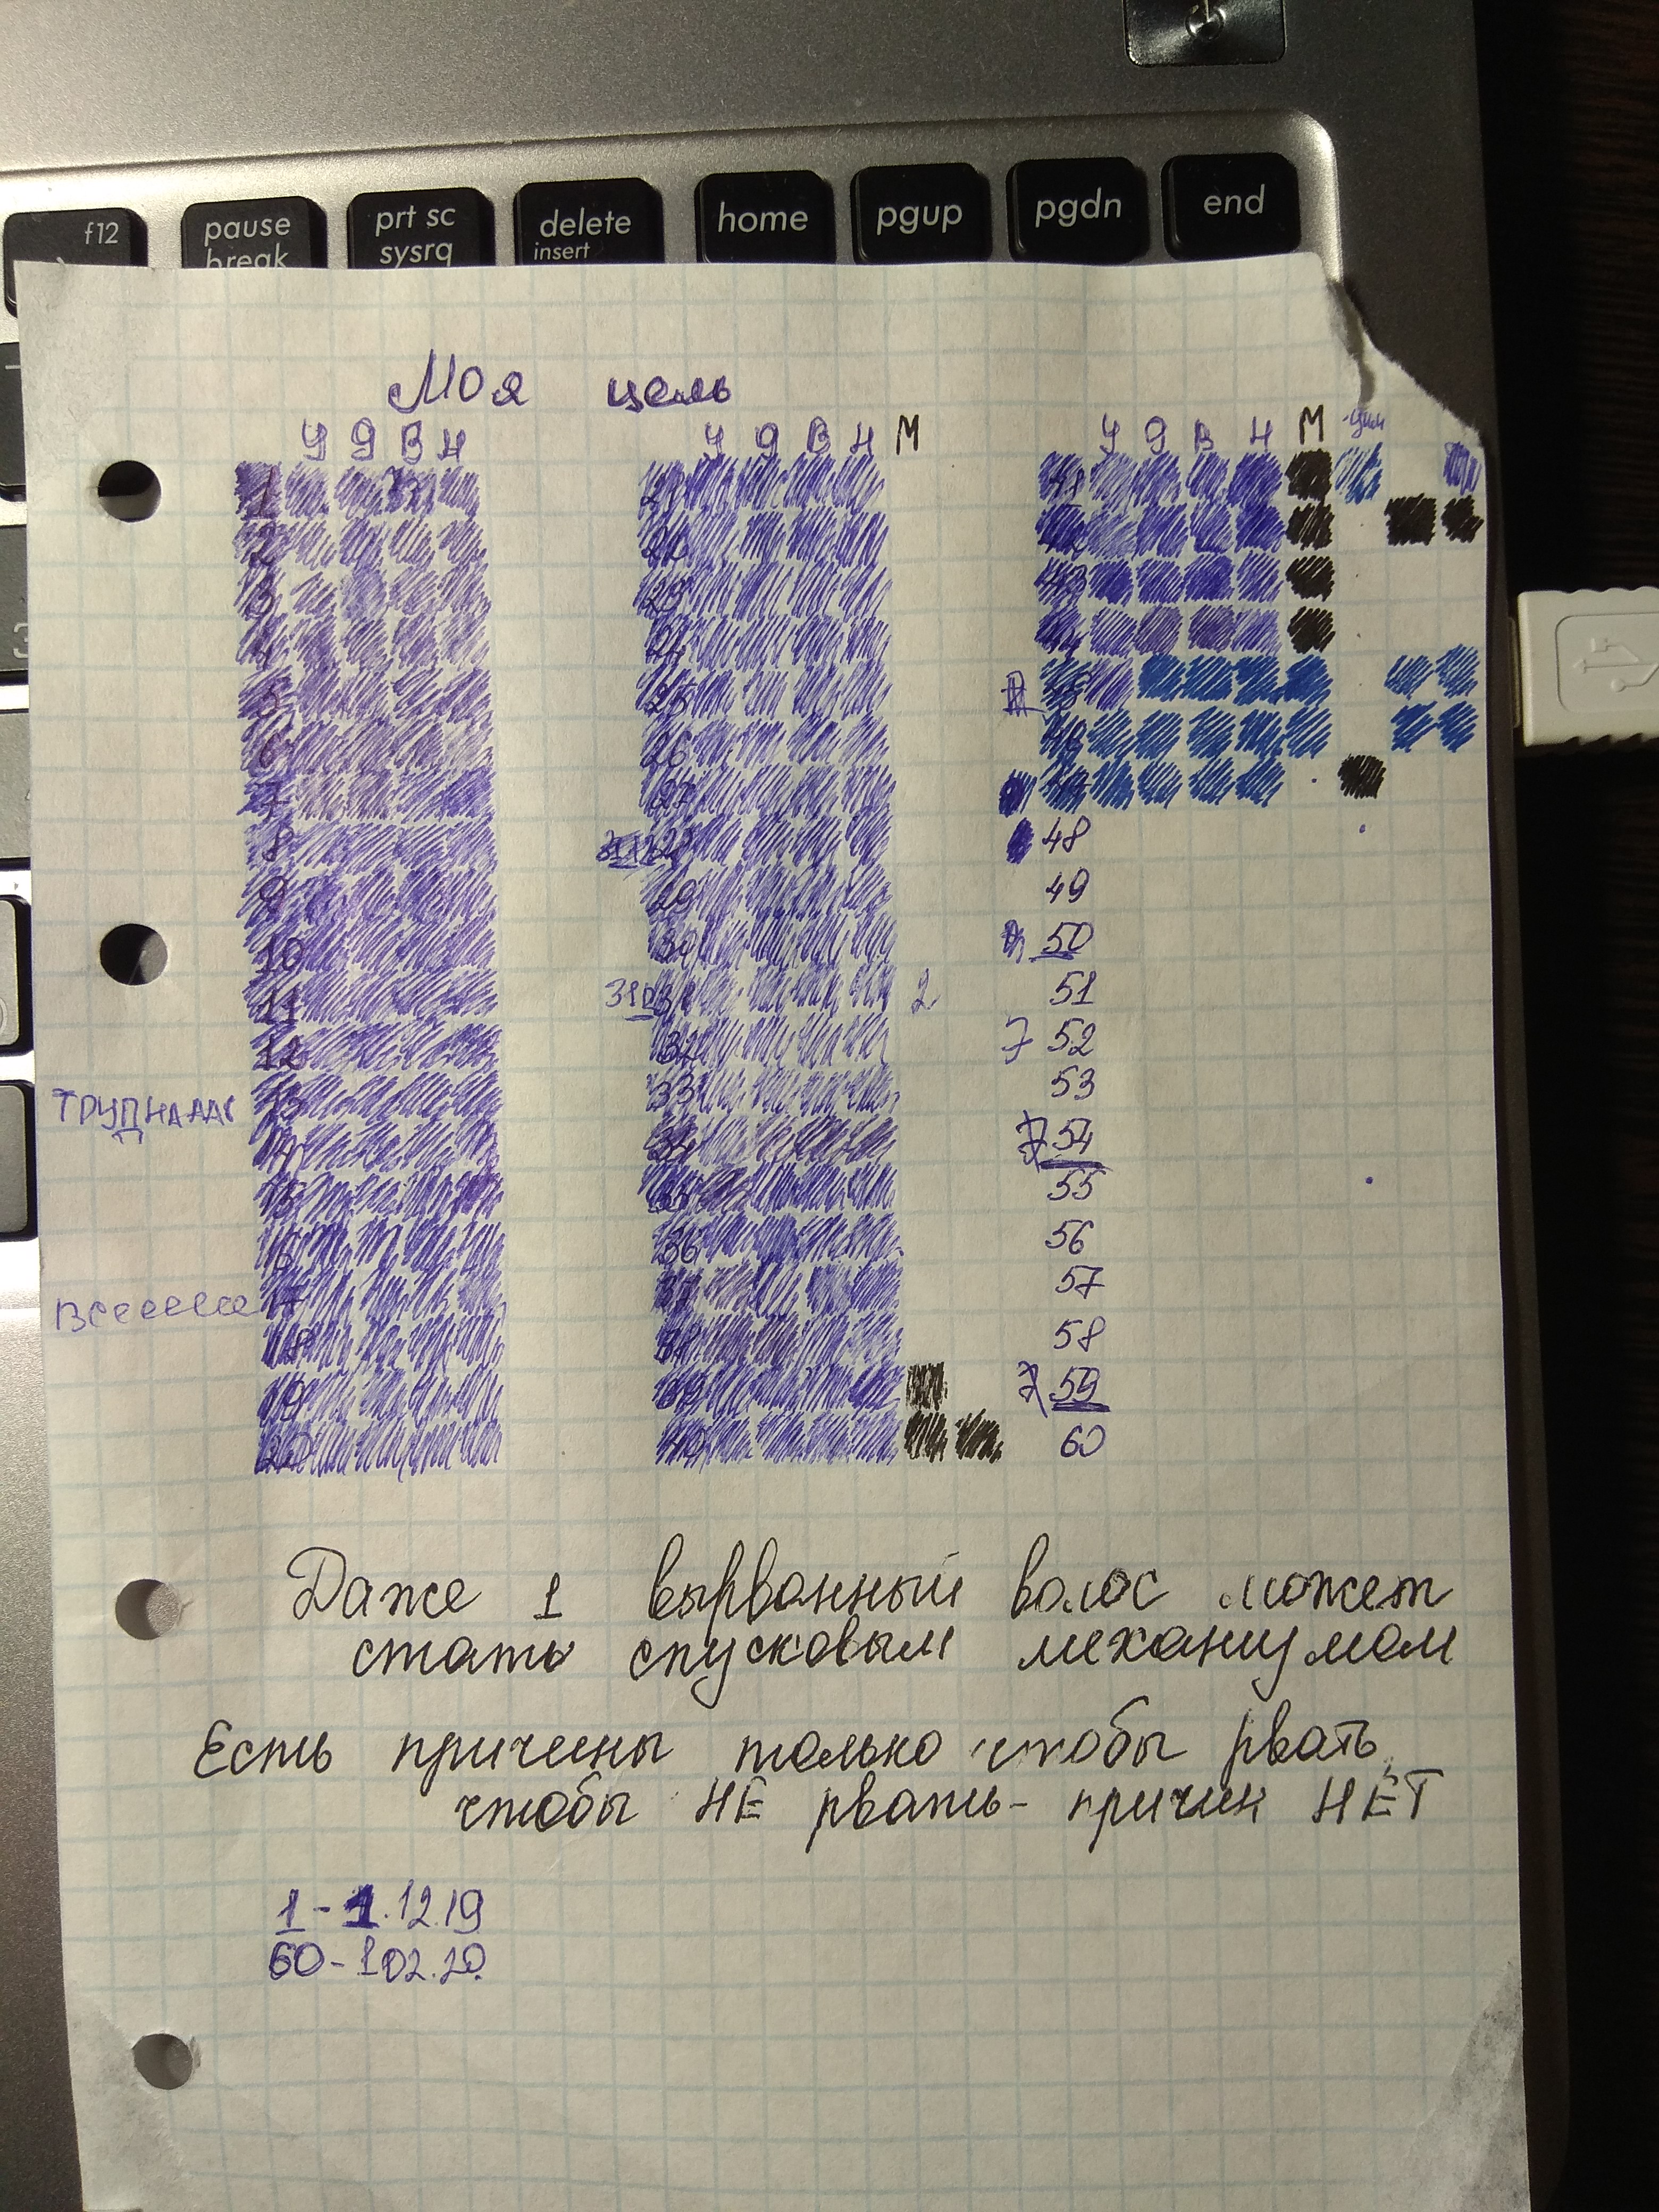 f12 pause break prt sc sysrq delete insert home pgup pgdn end
Моя цель
У Д В Н У Д В Н М У Д В Н М
1 21 41
2 22 42
3 23 43
4 24 44
5 25
6 26 46
7 27 47
8 28 48
9 29 49
10 30 50
11 31 2 51
12 32 7 52
ТРУДНААА 13 33 53
14 34 54
15 35 55
16 36 56
Вссссссс 17 37 57
18 38 58
19 39 59
20 40 60
Даже 1 вырванный волос может
стать спусковым механизмом
Есть причины только чтобы рвать,
чтобы НЕ рвать - причин НЕТ
1 - 1.12.19
60 - 1 02.20.